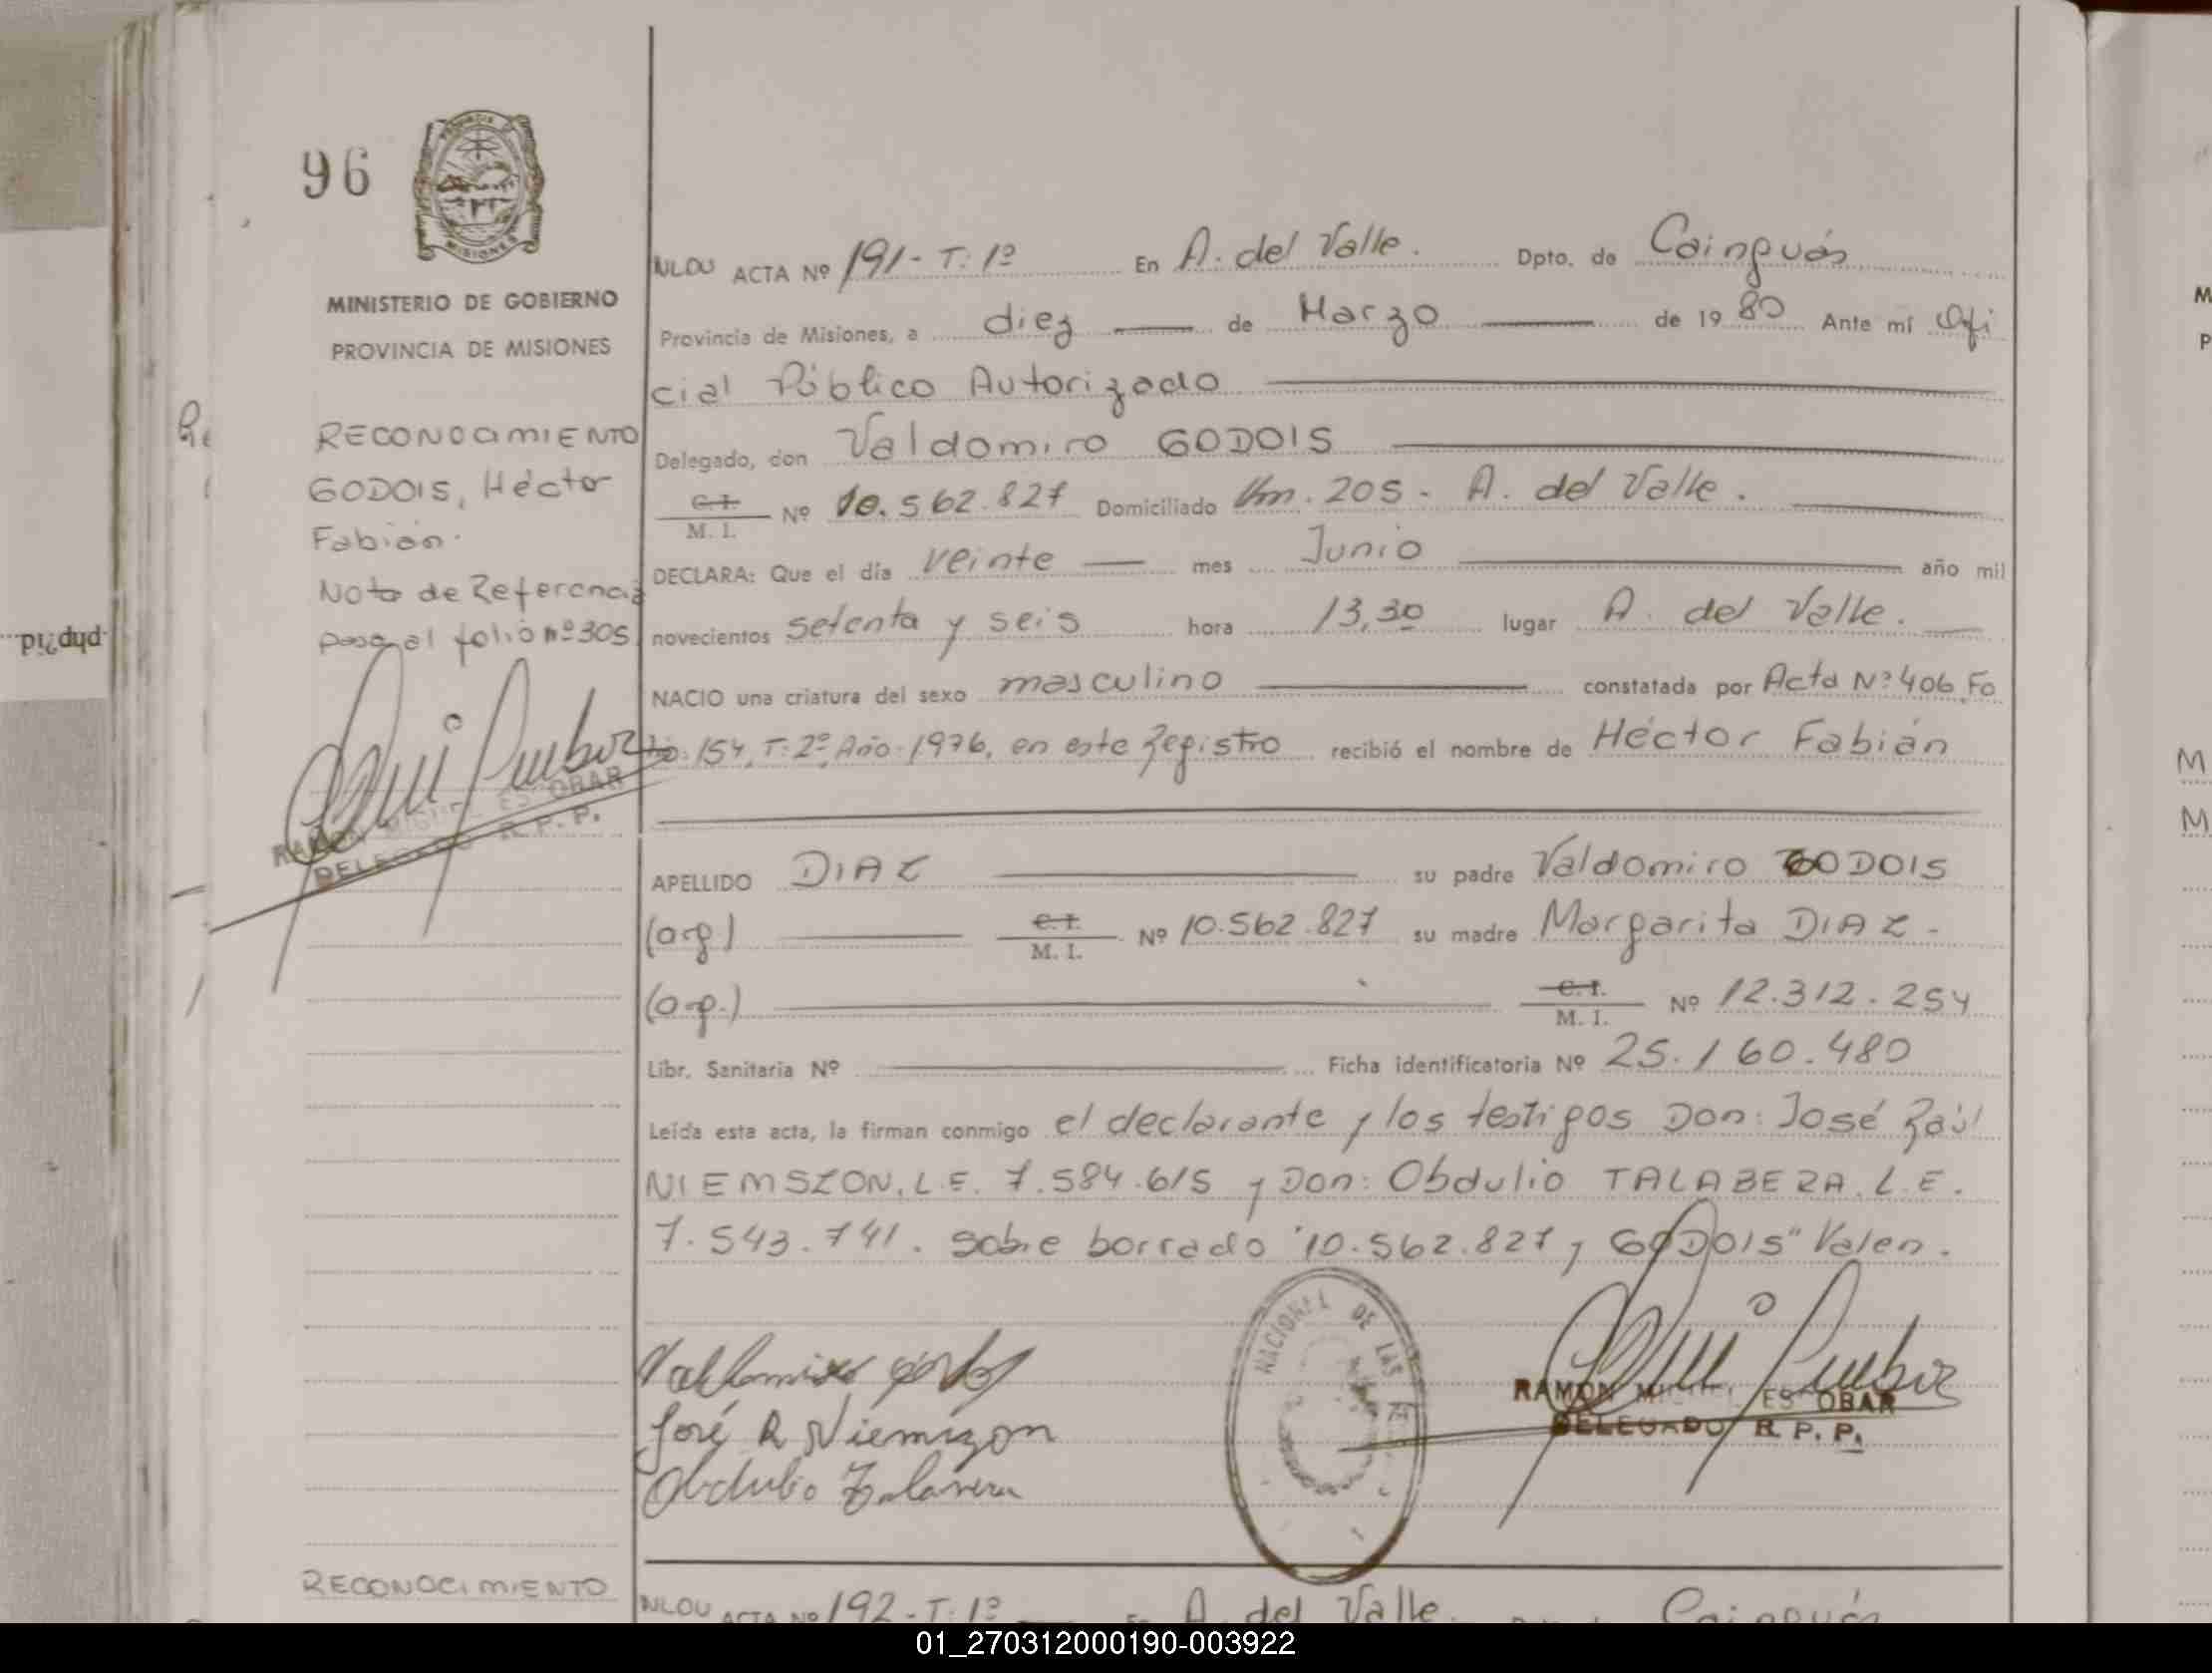 96
PROVINCIA D
MISIONES
MINISTERIO DE GOBIERNO
PROVINCIA DE MISIONES
RECONOCIMIENTO
GODOIS, Héctor
Fabián.
Nota de Referencia
pasa al folio nº 305
RAMON MIGUEL ESCOBAR
DELEGADO R. P. P.
ACTA Nº 191 - T: 1º En A. del Valle. Dpto. de Cainguás
Provincia de Misiones, a diez de Marzo de 19 80 Ante mí Ofi
cial Público Autorizado
Delegado, don Valdomiro GODOIS
C. I.
M. I. Nº 10.562.827 Domiciliado Km. 205 - A. del Valle.
DECLARA: Que el día veinte mes Junio año mil
novecientos setenta y seis hora 13,30 lugar A. del Valle.
NACIO una criatura del sexo masculino constatada por Acta Nº 406 Fo
lio: 154, T: 2º, Año: 1976, en este Registro recibió el nombre de Héctor Fabián
APELLIDO DIAZ su padre Valdomiro GODOIS
(arg) C. I.
M. I. Nº 10.562.827 su madre Margarita DIAZ -
(arg.) C. I.
M. I. Nº 12.312.254
Libr. Sanitaria Nº Ficha identificatoria Nº 25.160.480
Leída esta acta, la firman conmigo el declarante y los testigos Don: José Raúl
NIEMSZON, L.E. 7.584.615 y Don: Obdulio TALABERA. L.E.
7.543.741. Sobre borrado "10.562.827 y GODOIS" Valen.
NACIONAL DE LAS
Valdomiro
José R Niemszon
Obdulio Talavera
RAMON MIGUEL ESCOBAR
DELEGADO R. P. P.
RECONOCIMIENTO
ACTA Nº 192 - T: 1º En A. del Valle. Cainguás
01_270312000190-003922